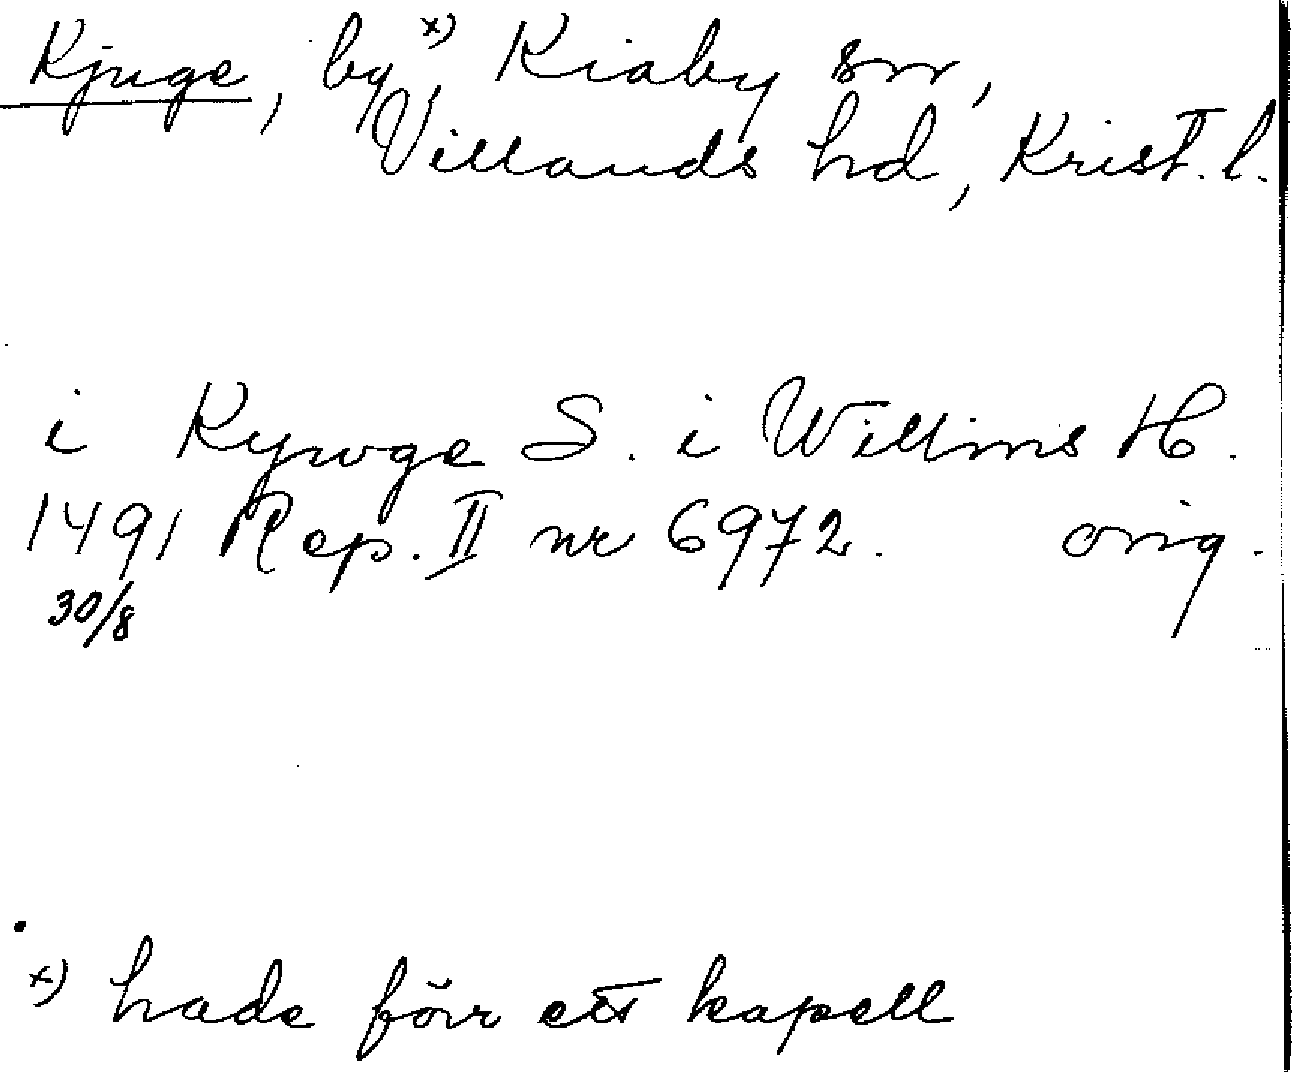 Kjuge, by x), Kiaby sn,
Villands hd, Krist. l.
i Kywge S. i Willins H.
1491 Rep. II nr 6972. orig.
30/8
x) hade förr ett kapell